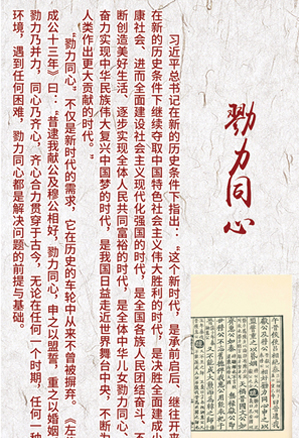 勠力同心
习近平总书记在新的历史条件下指出：“这个新时代，是承前启后、继往开来
在新的历史条件下继续夺取中国特色社会主义伟大胜利的时代，是决胜全面建成小
康社会、进而全面建设社会主义现代化强国的时代，是全国各族人民团结奋斗、不
断创造美好生活、逐步实现全体人民共同富裕的时代，是全体中华儿女勠力同心、
奋力实现中华民族伟大复兴中国梦的时代，是我国日益走近世界舞台中央、不断为
人类作出更大贡献的时代。”
“勠力同心”不仅是新时代的需求，它在历史的车轮中从来不曾被摒弃。《左
成公十三年》曰：“昔逮我献公及穆公相好，勠力同心，申之以盟誓，重之以婚姻
勠力乃并力，同心乃齐心，齐心合力贯穿于古今，无论在任何一个时期，任何一种
环境，遇到任何困难，勠力同心都是解决问题的前提与基础。